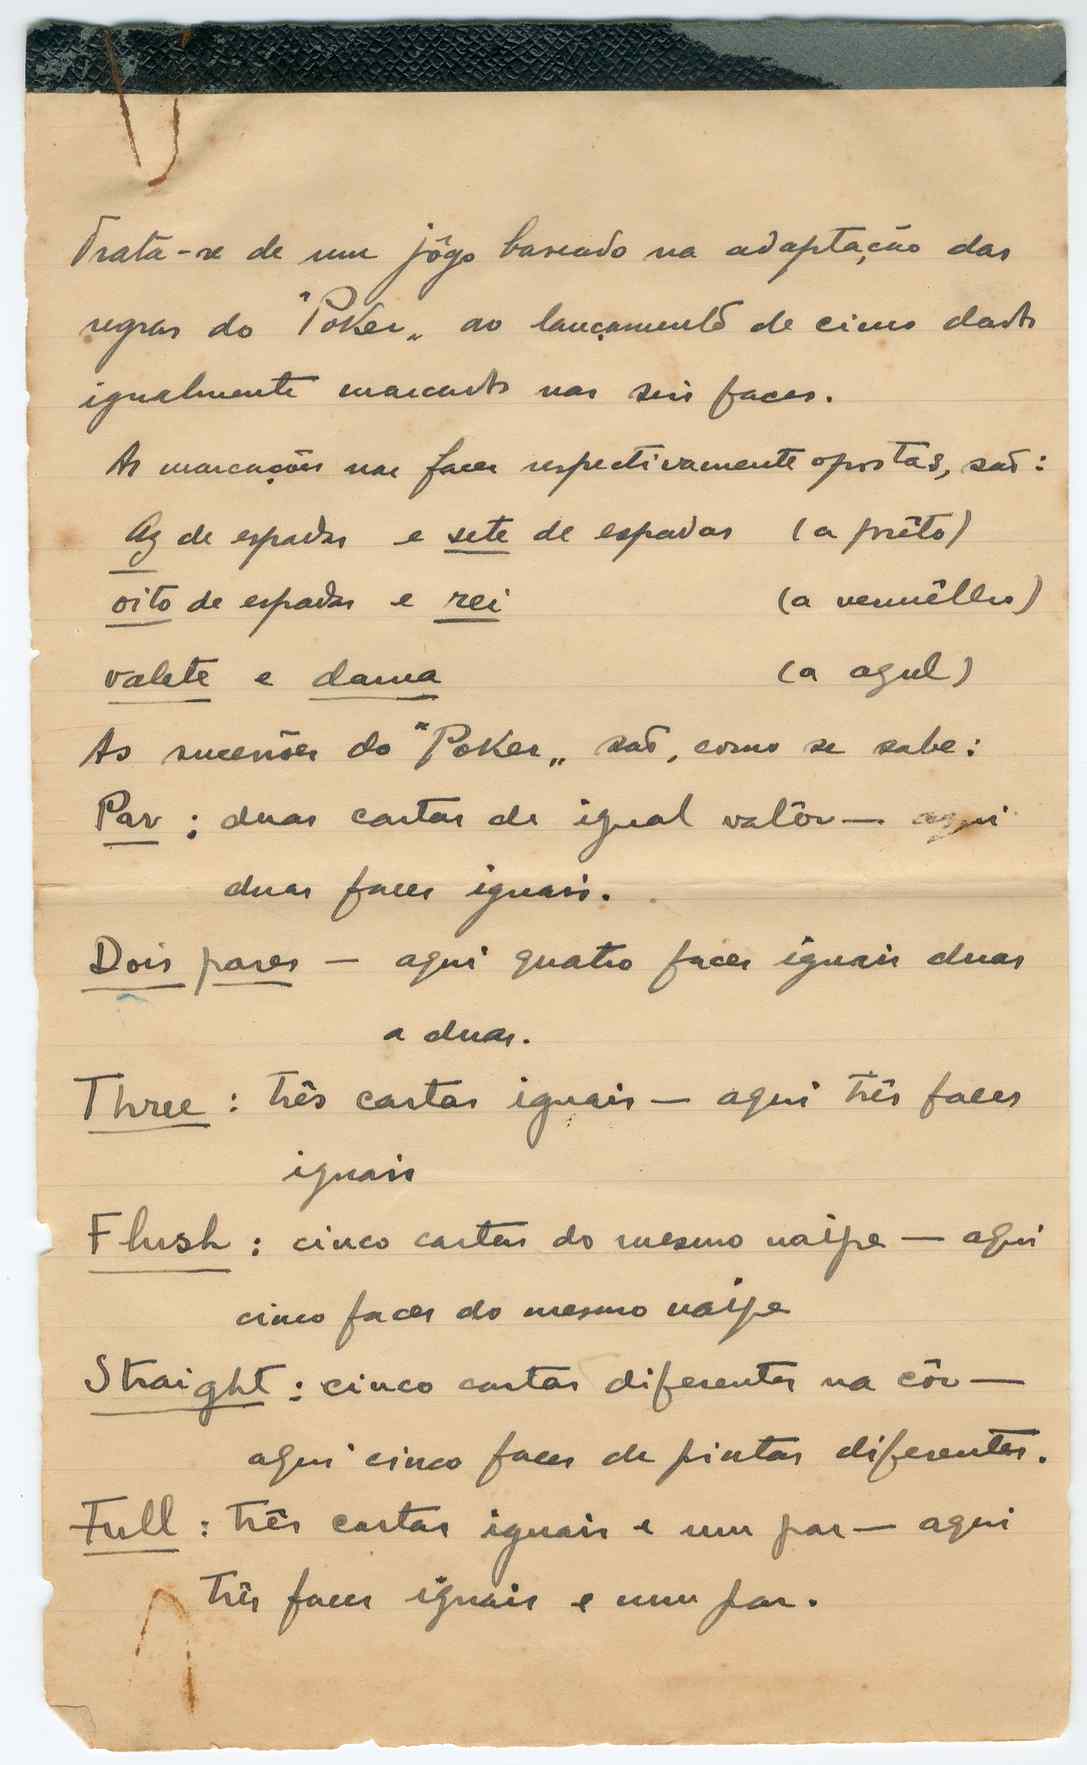 Trata-se de um jôgo baseado na adaptação das
regras do "Poker„ ao lançamento de cinco dados
igualmente marcados nas seis faces.
As marcações nas faces respectivamente opostas, são:
Az de espadas e sete de espadas (a prêto)
oito de espadas e rei (a vermêlho)
valete e dama (a azul)
As sucessões do "Poker„ são, como se sabe:
Par : duas cartas de igual valôr — aqui
duas faces iguais.
Dois pares — aqui quatro faces iguais duas
a duas.
Three : três cartas iguais — aqui três faces
iguais
Flush : cinco cartas do mesmo naipe — aqui
cinco faces do mesmo naipe
Straight : cinco cartas diferentes na côr —
aqui cinco faces de pintas diferentes.
Full : três cartas iguais e um par — aqui
três faces iguais e um par.